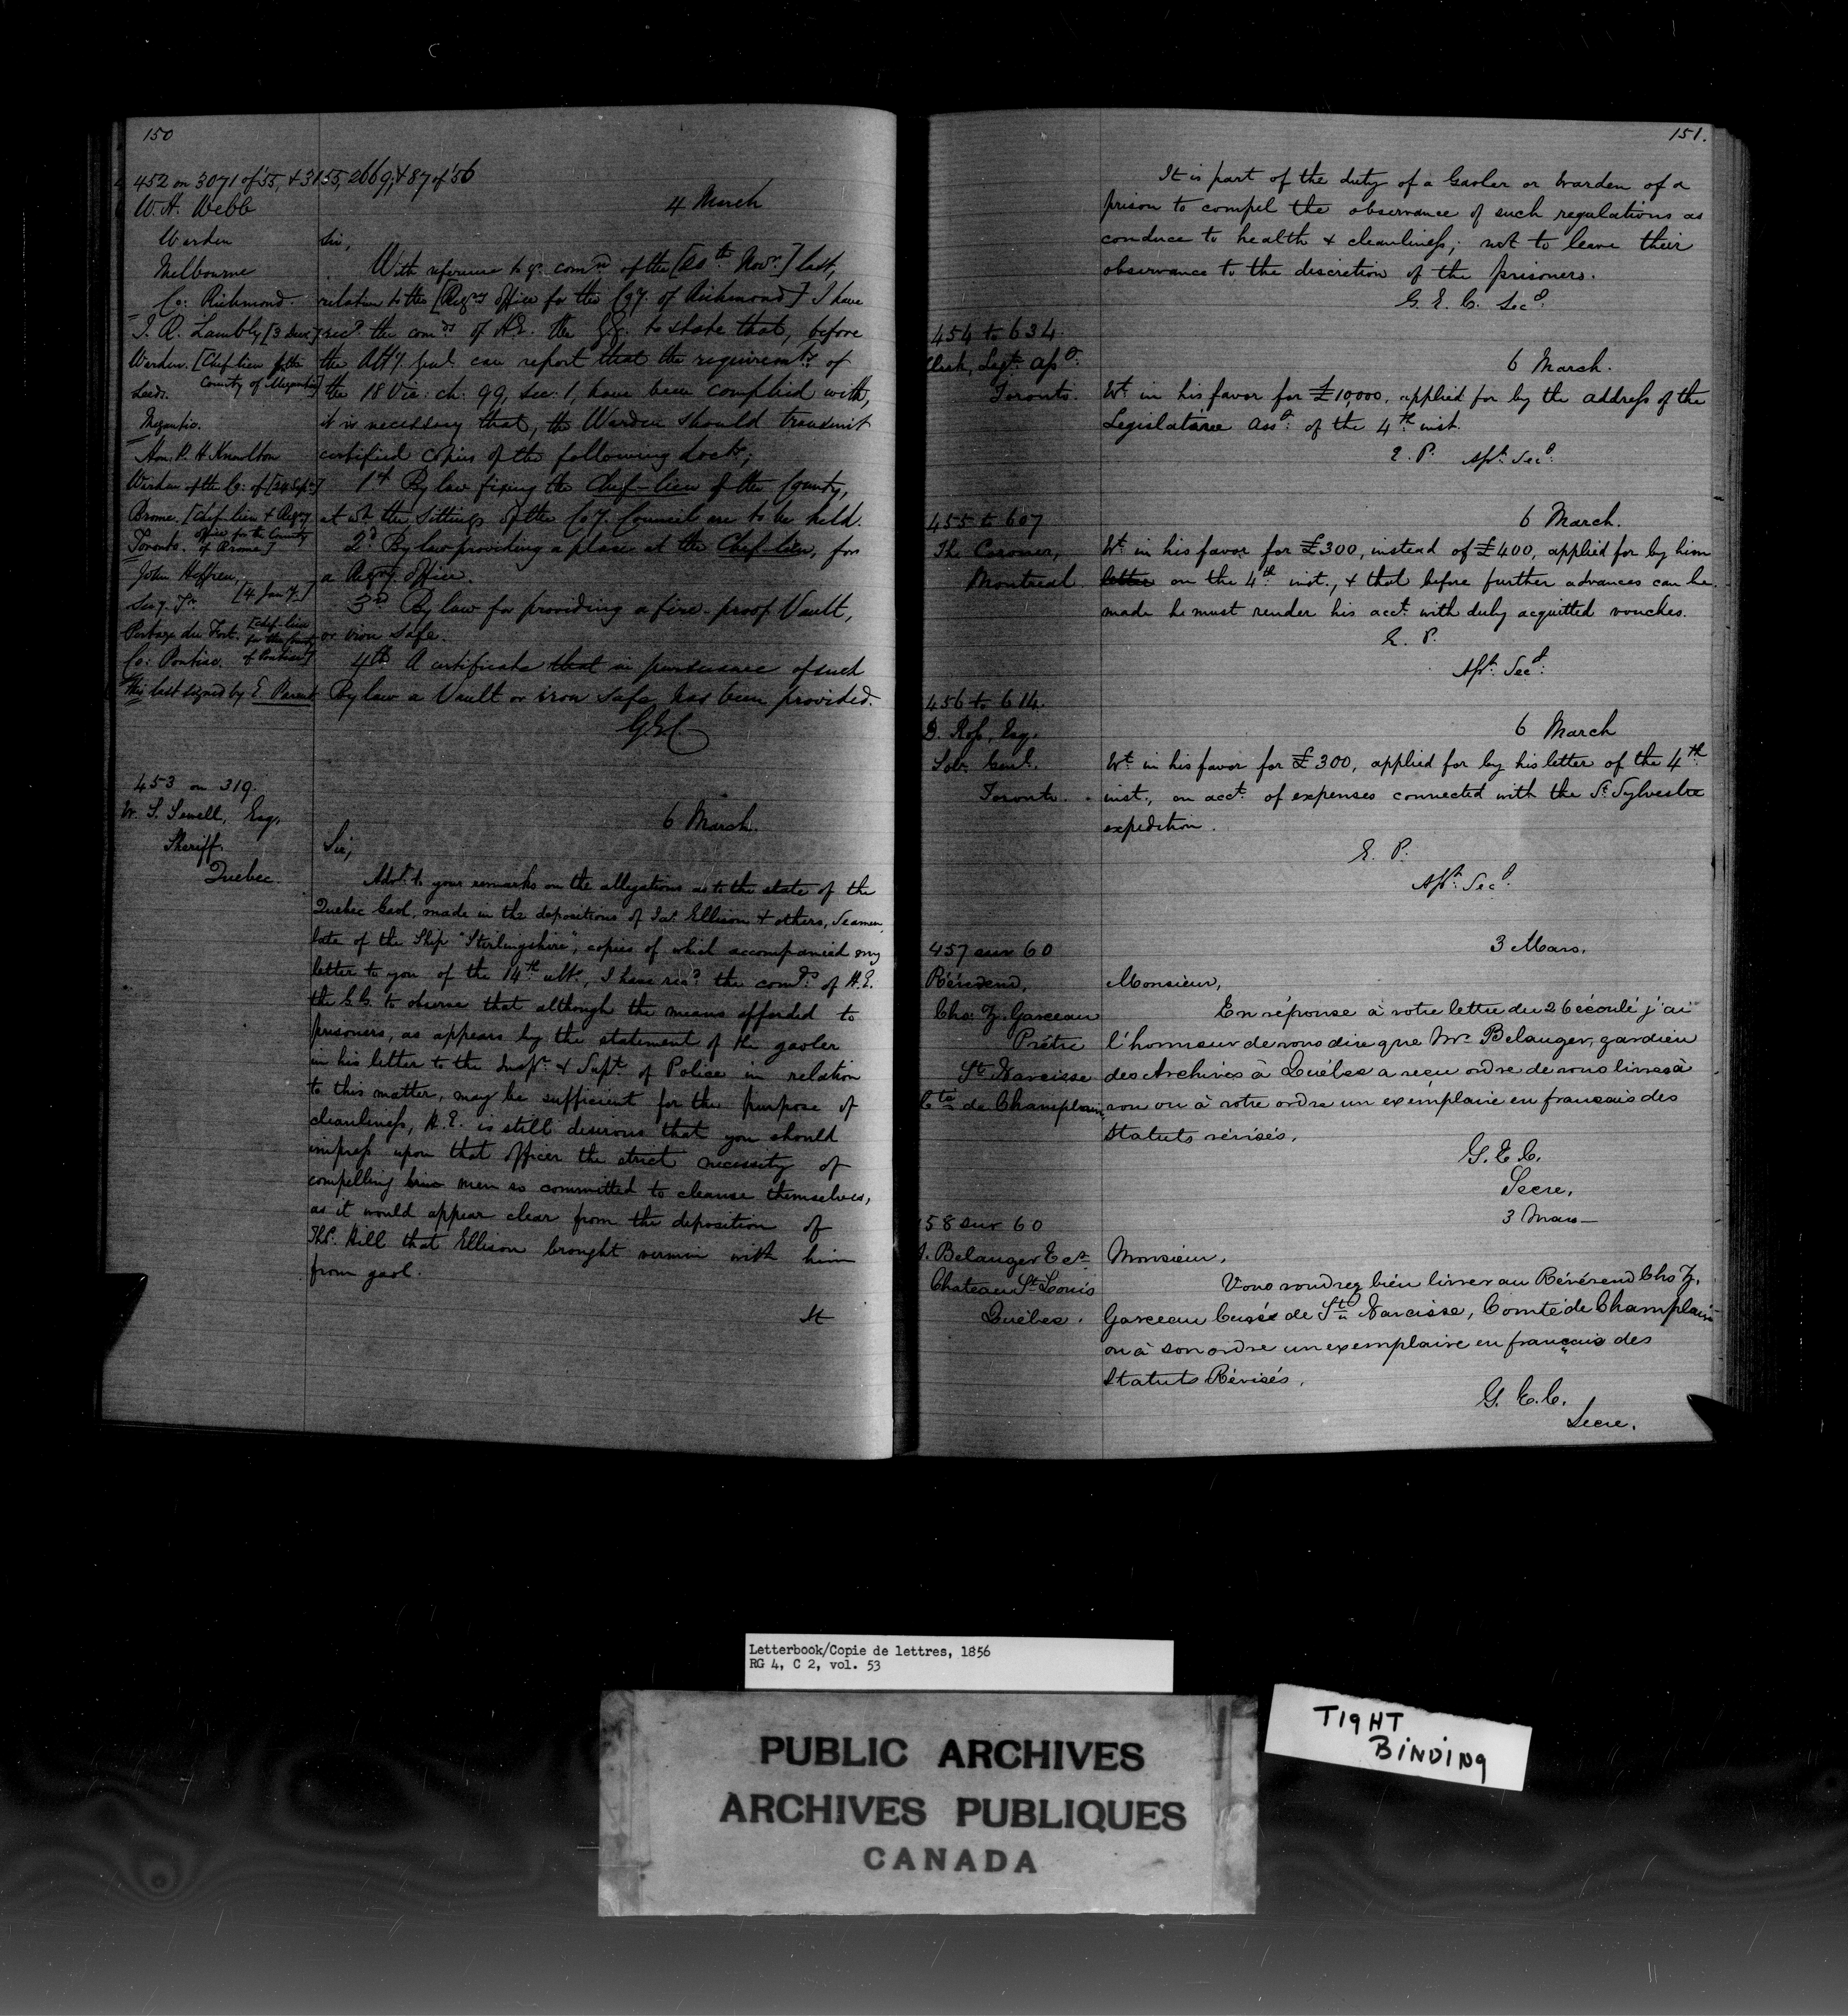 150
452 on 3071 of '55, & 3155, 2669, & 87 of '56
W. H. Webb
Warden
Melbourne
Co: Richmond
I. R. Lambly [3 Decr]
Warden. [Chef-lieu for the
County of Megantic]
Leeds.
Megantic.
Hon: P. H. Knowlton
Warden of the Co: of [24 Sepr]
Brome. [Chef-lieu & Regy
office for the County
of Brome]
Toronto.
John Heffren,
Secy. Tr. [4 Jany.]
Portage du Fort. [Chef-lieu
for the County
of Pontiac]
Co: Pontiac.
This last signed by E. Parent
4 March
Sir,
With reference to yr. comn of the [20th Novr.] last,
relative to the [Regry office for the Coy. of Richmond] I have
recd. the comds of H.E. the GG. to state that, before
the Atty. Genl can report that the requiremts. of
the 18 Vic: ch: 99, Sec: 1, have been complied with,
it is necessary that, the Warden should transmit
certified copies of the following docts;
1st By law fixing the Chef-lieu of the County,
at wh. the sittings of the Coy. Council are to be held.
2d. By law providing a place at the Chef-lieu, for
a Regry office.
3rd By law for providing a fire-proof Vault,
or iron safe.
4th A certificate that in pursuance of such
By law a Vault or iron safe has been provided.
GEC
453 on 319.
W. S. Sewell, Esq,
Sheriff.
Quebec.
6 March.
Sir,
Advt. to your remarks on the allegations as to the state of the
Quebec Gaol, made in the depositions of Jas. Ellison & others, Seamen,
late of the Ship "Sterlingshire", copies of which accompanied my
letter to you of the 14th ulto., I have recd. the comds. of H.E.
the G.G. to observe that although the means afforded to
prisoners, as appears by the statement of the gaoler
in his letter to the Inspr. & Supt. of Police in relation
to this matter, may be sufficient for the purpose of
cleanliness, H.E. is still desirous that you should
impress upon that officer the strict necessity of
compelling men so committed to cleanse themselves,
as it would appear clear from the deposition of
Thos. Hill that Ellison brought vermin with him
from gaol.
It
151.
It is part of the duty of a Gaoler or Warden of a
prison to compel the observance of such regulations as
conduce to health & cleanliness; not to leave their
observance to the discretion of the prisoners.
G. E. C. Secy.
454 to 634
Clerk, Legve. Assy.
Toronto.
6 March.
Wt. in his favor for £10,000, applied for by the address of the
Legislative Assy. of the 4th inst.
E. P. Asst. Secy.
455 to 607
The Coroner,
Montreal
6 March.
Wt. in his favor for £300, instead of £400, applied for by him
letter on the 4th inst., & that before further advances can be
made he must render his acct. with duly acquitted vouches.
E. P.
Asst. Secy.
456 to 614.
D. Ross, Esq.
Solr. Genl.
Toronto.
6 March
Wt. in his favor for £300, applied for by his letter of the 4th
inst., on acct. of expenses connected with the St. Sylvestre
expedition.
E. P.
Asst. Secy.
457 sur 60
Révérend,
Chs. Z. Garceau
Prêtre
St. Narcisse
Cté de Champlain
3 Mars.
Monsieur,
En réponse à votre lettre du 26 écoulé j'ai
l'honneur de vous dire que Mr. Belanger, gardien
des Archives à Québec a reçu ordre de vous livrer à
vou ou à votre ordre un exemplaire en francais des
Statuts révisés.
G. E. C.
Secre.
58 sur 60
Belanger Ecr
Chateau St. Louis
Québec.
3 Mars
Monsieur,
Vous voudrez bien livrer au Révérend Chs Z.
Garceau Curé de St. Narcisse, Comté de Champlain
ou à son ordre un exemplaire en français des
Statuts Révisés.
G. E. C.
Secre.
Letterbook/Copie de lettres, 1856
RG 4, C 2, vol. 53
PUBLIC ARCHIVES
ARCHIVES PUBLIQUES
CANADA
TIGHT
BINDING